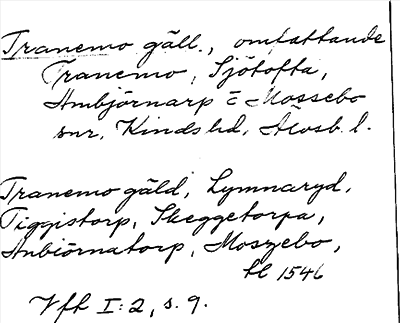 Tranemo gäll., omfattande
Tranemo, Sjötofta,
Ambjörnarp o Mossebo
snr, Kinds hd, Älvsb. l.
Tranemo gäld, Lymnaryd,
Tiggistorp, Skeggetorpa,
Anbiörnatorp, Moszebo,
hl 1546
Vfh I:2, s. 9.